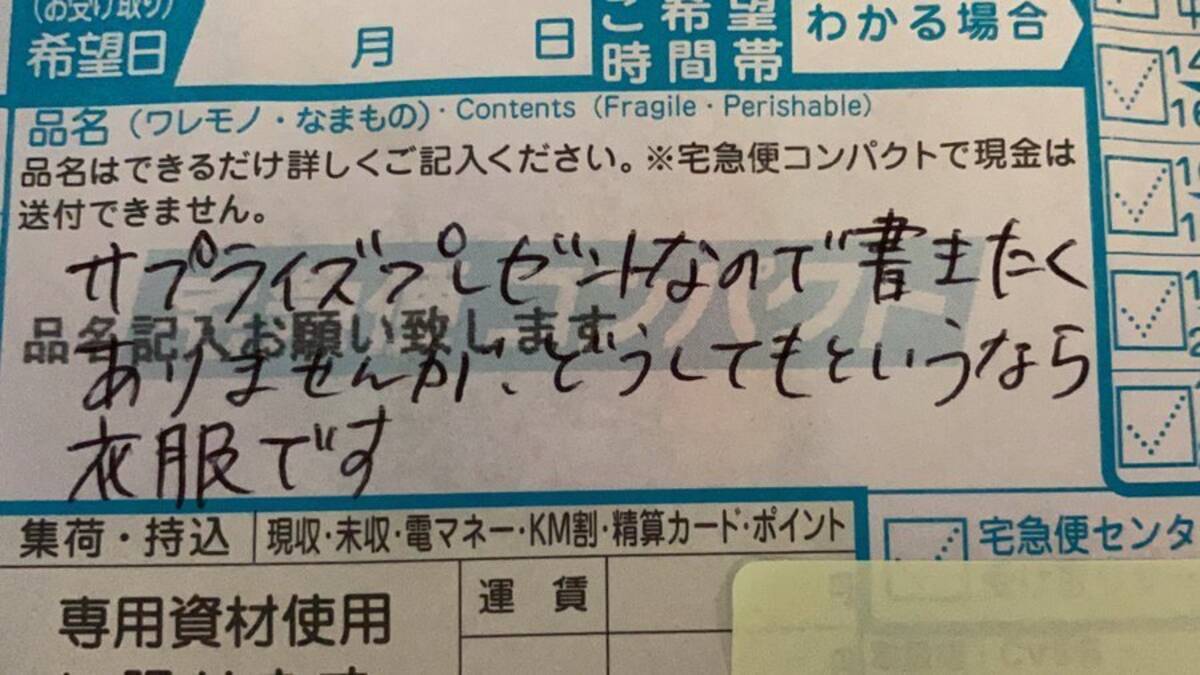 (お受け取り)
希望日
月 日
ご希望
時間帯
わかる場合
品名(ワレモノ・なまもの)・Contents(Fragile・Perishable)
品名はできるだけ詳しくご記入ください。※宅急便コンパクトで現金は
送付できません。
サプライズプレゼントなので書きたく
品名記入お願い致します
ありませんが、どうしてもというなら
衣服です
集荷・持込 現収・未収・電マネー・KM割・精算カード・ポイント
宅急便センタ
運賃
専用資材使用